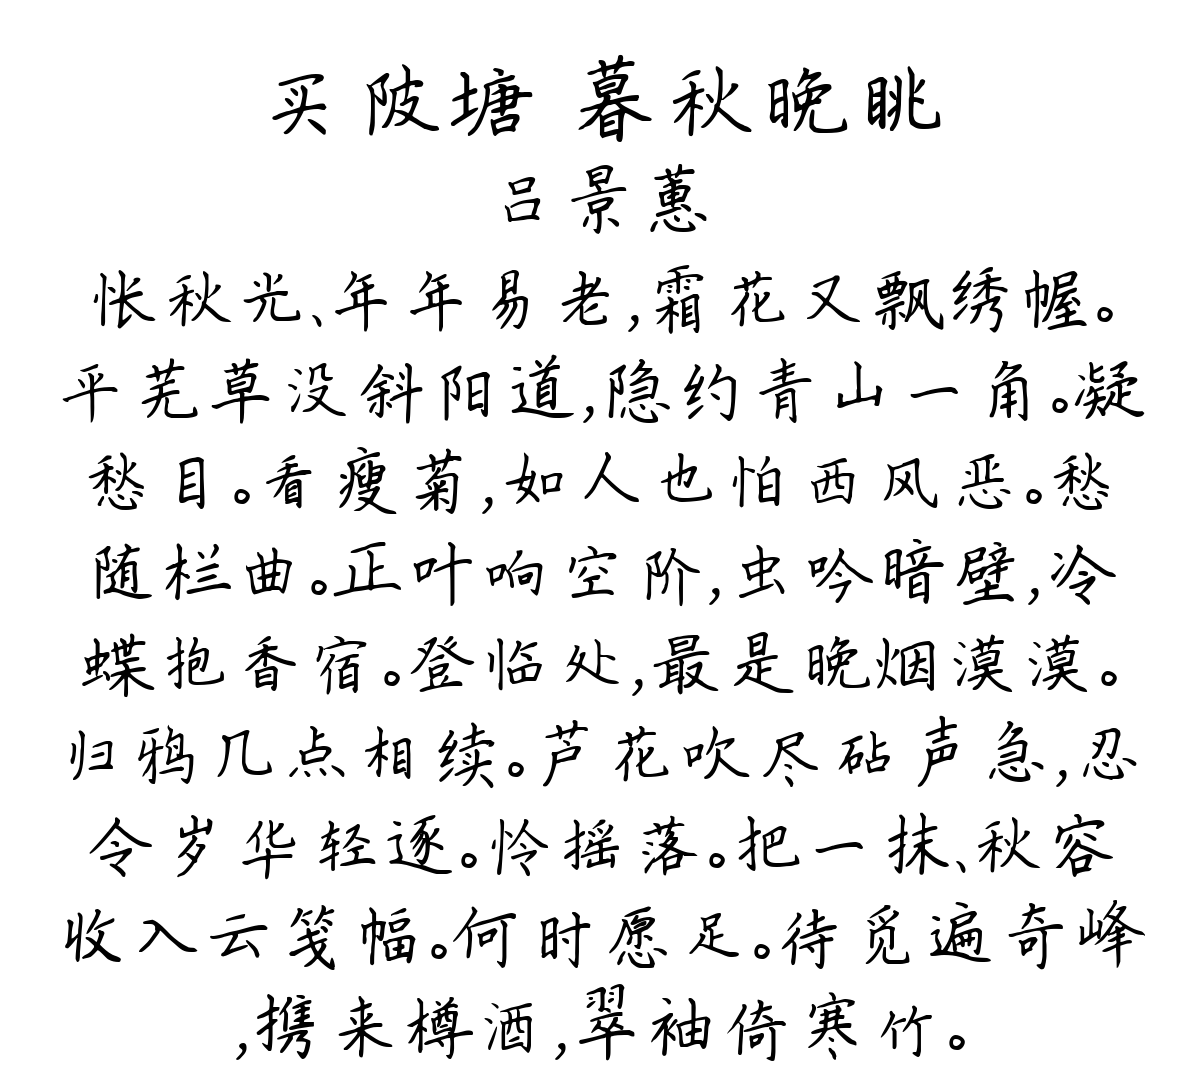 买陂塘 暮秋晚眺
吕景蕙
怅秋光、年年易老,霜花又飘绣幄。
平芜草没斜阳道,隐约青山一角。凝
愁目。看瘦菊,如人也怕西风恶。愁
随栏曲。正叶响空阶,虫吟暗壁,冷
蝶抱香宿。登临处,最是晚烟漠漠。
归鸦几点相续。芦花吹尽砧声急,忍
令岁华轻逐。怜摇落。把一抹、秋容
收入云笺幅。何时愿足。待觅遍奇峰
,携来樽酒,翠袖倚寒竹。